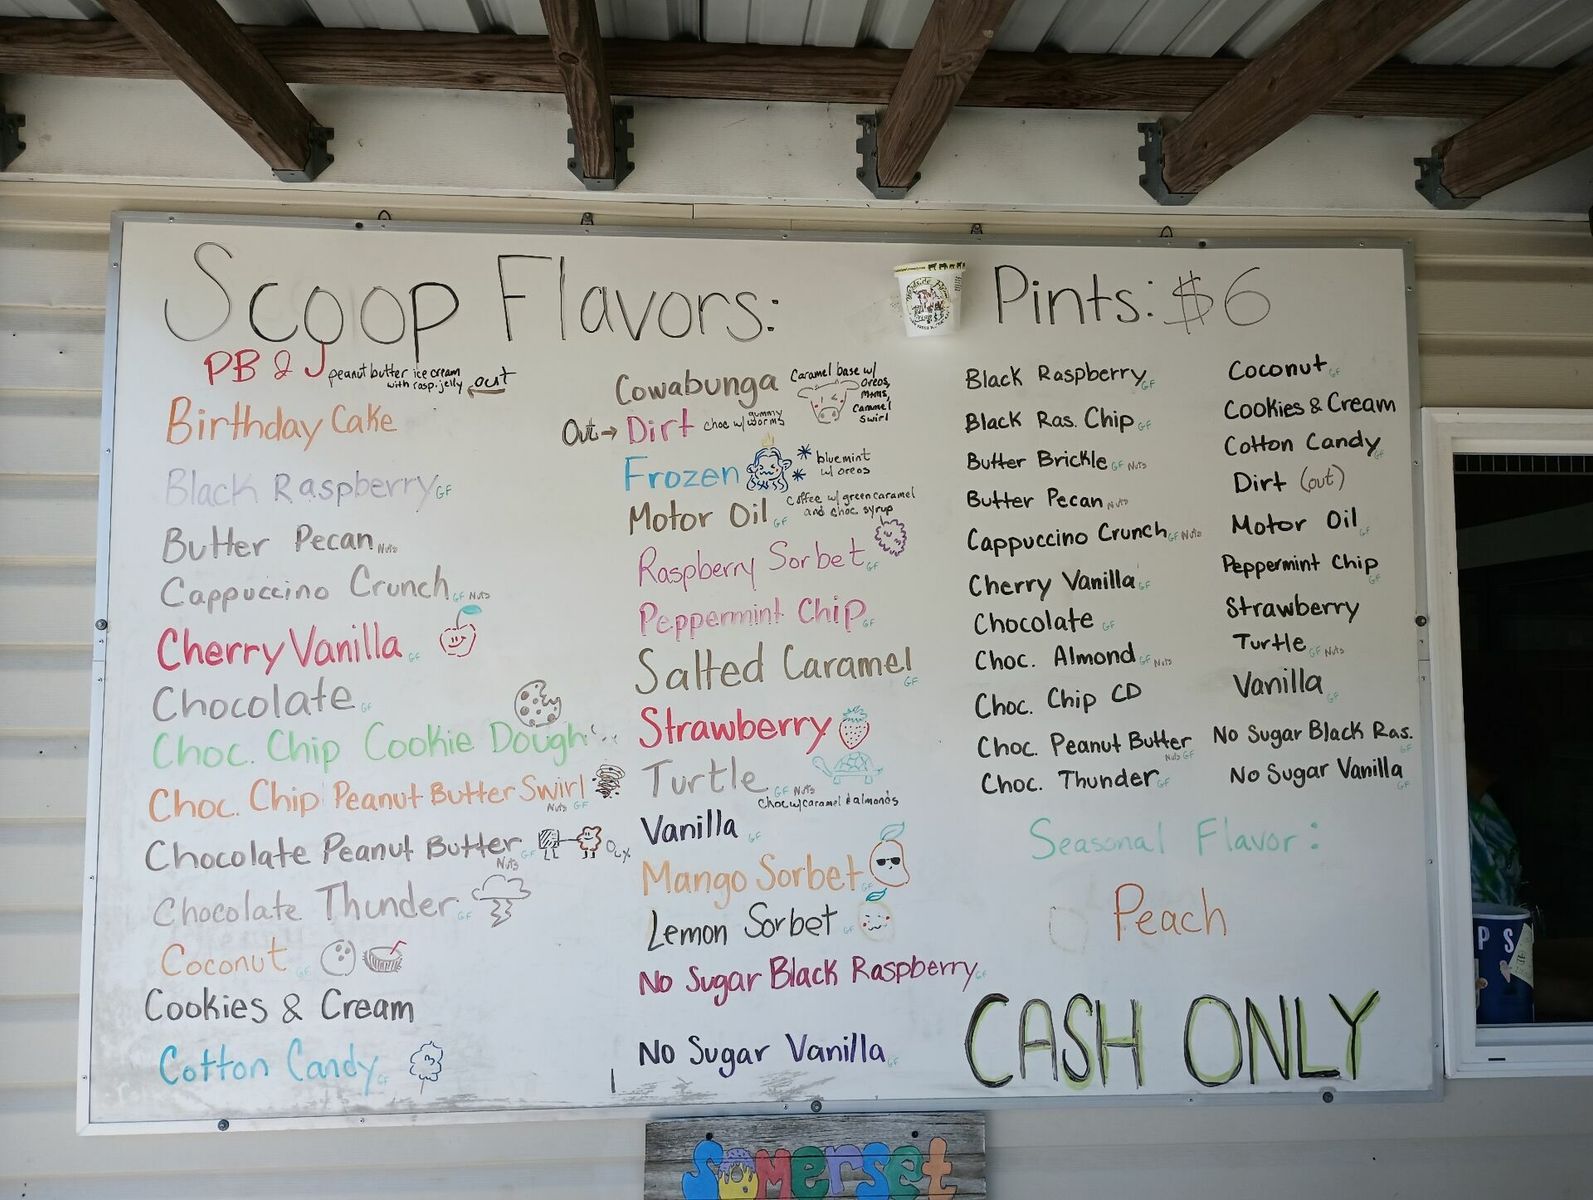 Scoop Flavors:
PB & J peanut butter ice cream
with rasp. jelly out
Birthday Cake
Black Raspberry GF
Butter Pecan Nuts
Cappuccino Crunch GF Nuts
Cherry Vanilla GF
Chocolate GF
Choc. Chip Cookie Dough
Choc. Chip Peanut Butter Swirl
Nuts GF
Chocolate Peanut Butter GF
Nuts
Chocolate Thunder GF
Coconut GF
Cookies & Cream
Cotton Candy GF
Cowabunga Caramel base w/
oreos,
m&ms,
caramel
swirl
Out → Dirt choc w/ gummy
worms
Frozen blue mint
w/ oreos
Motor Oil GF coffee w/ green caramel
and choc. syrup
Raspberry Sorbet GF
Peppermint Chip GF
Salted Caramel GF
Strawberry
Turtle GF Nuts
choc w/ caramel & almonds
Vanilla GF
Mango Sorbet GF
Lemon Sorbet GF
No Sugar Black Raspberry GF
No Sugar Vanilla GF
Pints: $6
Black Raspberry GF
Black Ras. Chip GF
Butter Brickle GF Nuts
Butter Pecan Nuts
Cappuccino Crunch GF Nuts
Cherry Vanilla GF
Chocolate GF
Choc. Almond GF Nuts
Choc. Chip CD
Choc. Peanut Butter
Nuts GF
Choc. Thunder GF
Coconut GF
Cookies & Cream
Cotton Candy GF
Dirt (out)
Motor Oil GF
Peppermint Chip GF
Strawberry
Turtle GF Nuts
Vanilla GF
No Sugar Black Ras. GF
No Sugar Vanilla GF
Seasonal Flavor:
Peach
CASH ONLY
Somerset
PS